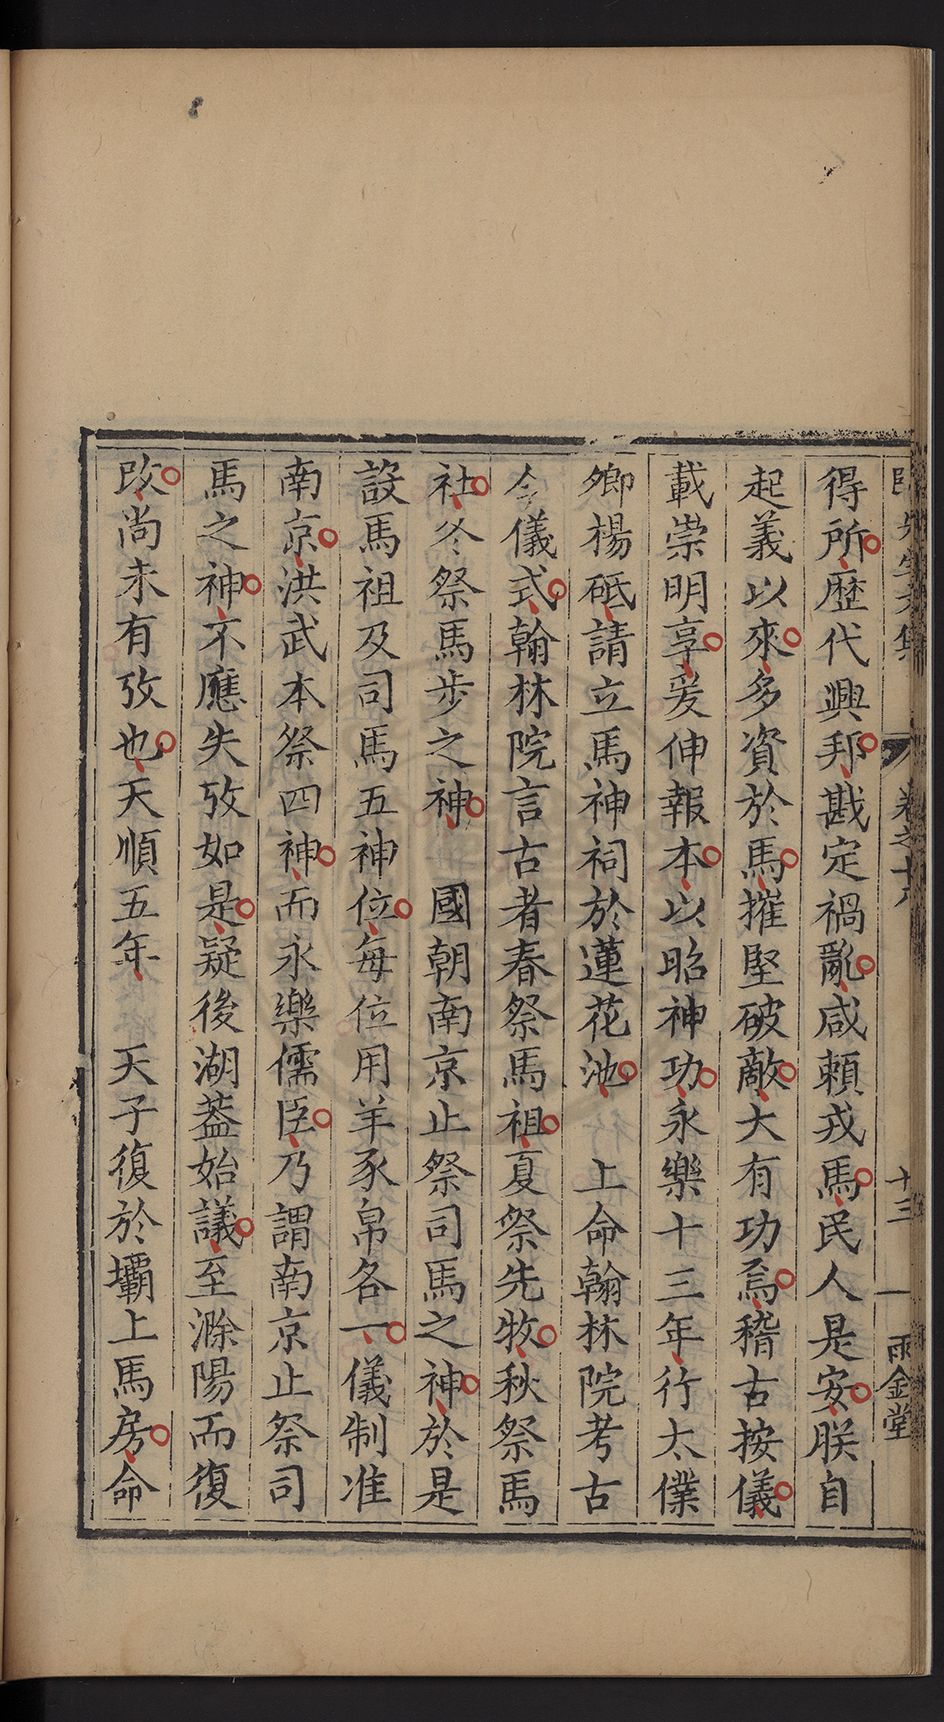 卷之十八 十三 雨金堂
得所歷代興邦戡定禍亂咸賴戎馬民人是安朕自
起義以來多資於馬摧堅破敵大有功焉稽古按儀
載崇明享爰伸報本以昭神功永樂十三年行太僕
卿楊砥請立馬神祠於蓮花池 上命翰林院考古
今儀式翰林院言古者春祭馬祖夏祭先牧秋祭馬
社冬祭馬步之神 國朝南京止祭司馬之神於是
設馬祖及司馬五神位每位用羊豕帛各一儀制准
南京洪武本祭四神而永樂儒臣乃謂南京止祭司
馬之神不應失攷如是疑後湖葢始議至滁陽而復
改尚未有攷也天順五年 天子復於壩上馬房命